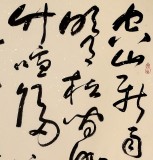 空山新雨
明月松間
竹喧歸